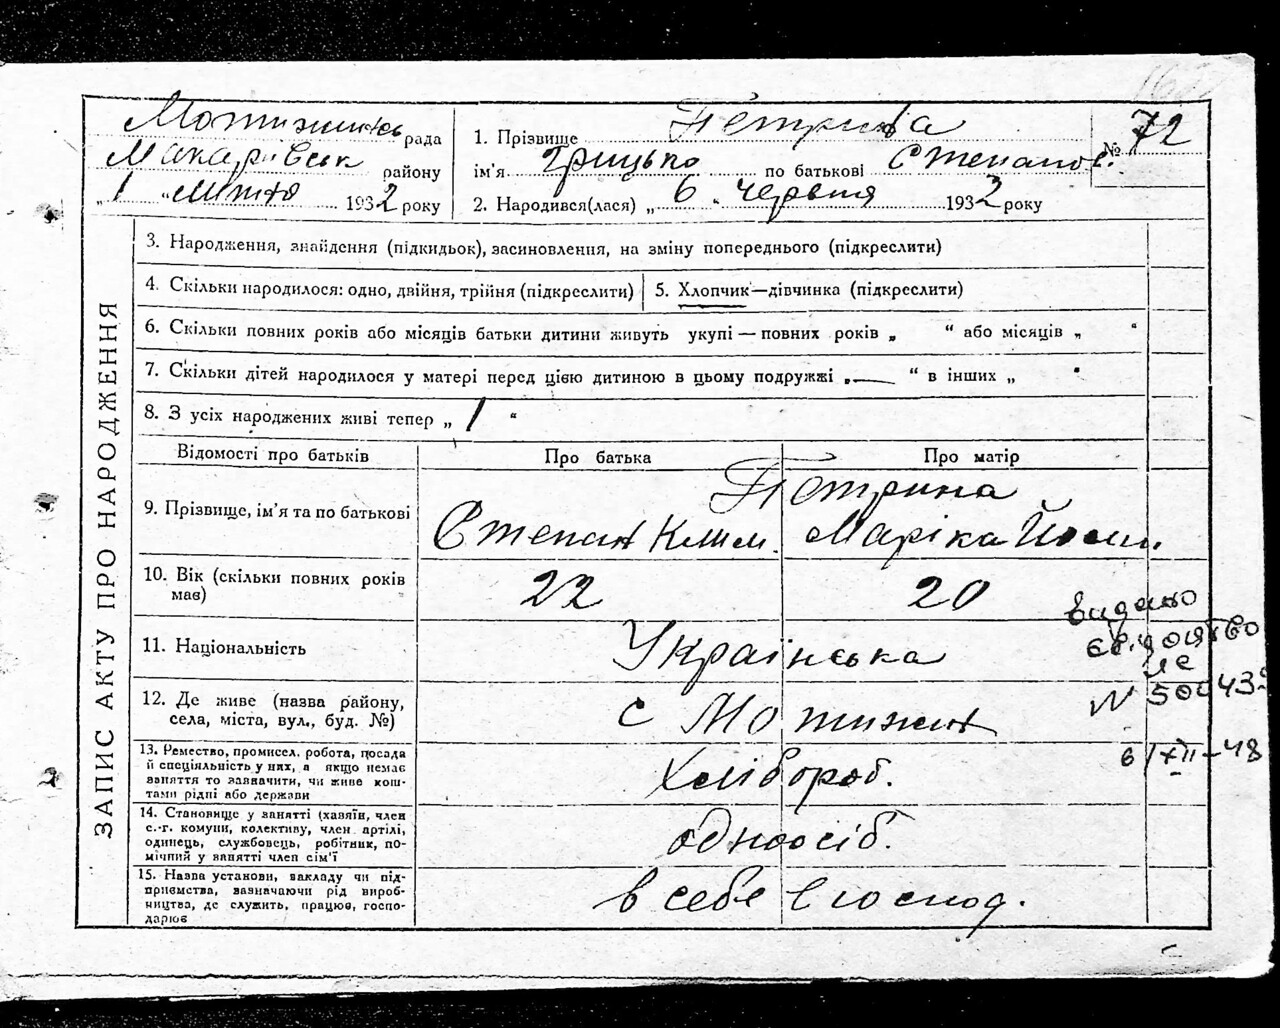 Мотижинсь рада
Макарівськ району
„ 1 " липня 1932 року
1. Прізвище Петрина
№ 72
ім'я Грицько по батькові Степанов.
2. Народився(лася) „ 6 " червня 1932 року
ЗАПИС АКТУ ПРО НАРОДЖЕННЯ
3. Народження, знайдення (підкидьок), засиновлення, на зміну попереднього (підкреслити)
4. Скільки народилося: одно, двійня, трійня (підкреслити)
5. Хлопчик—дівчинка (підкреслити)
6. Скільки повних років або місяців батьки дитини живуть укупі — повних років „ " або місяців „ "
7. Скільки дітей народилося у матері перед цією дитиною в цьому подружжі „ — " в інших „ "
8. З усіх народжених живі тепер „ 1 "
Відомості про батьків
Про батька
Про матір
9. Прізвище, ім'я та по батькові
Петрина
Степан Клим.
Маріка Йосип.
10. Вік (скільки повних років
має)
22
20
11. Національність
Українська
12. Де живе (назва району,
села, міста, вул., буд. №)
с Мотижин
13. Ремество, промисел, робота, посада
й спеціяльність у них, а якщо немає
заняття то зазначити, чи живе кош-
тами рідні або держави
Хлібороб.
14. Становище у занятті (хазяїн, член
с.-г. комуни, колективу, член артілі,
одинець, службовець, робітник, по-
мічний у занятті член сім'ї
одноосіб.
15. Назва установи, закладу чи під-
приємства, зазначаючи рід вироб-
ництва, де служить, працює, госпо-
дарює
в себе в господ.
видано
свідоцтво
N
6/XII-48